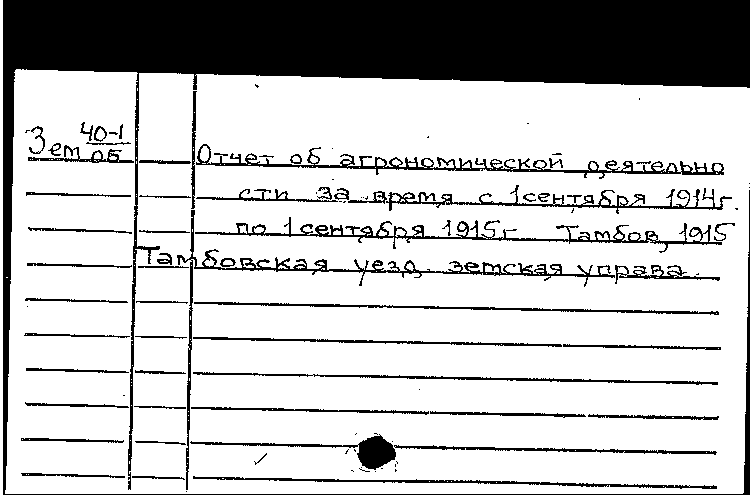 Зем 40-1/об
Отчет об агрономической деятельно
сти за время с 1 сентября 1914г.
по 1 сентября 1915г. Тамбов, 1915
Тамбовская уезд. земская управа.